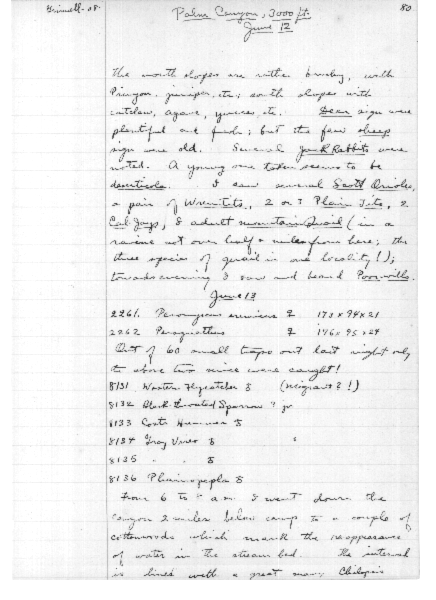 Grinnell - '08.
Palm Canyon, 3000 ft.
80
June 12
the north slopes are rather brushy, with
Pinyon, juniper, etc; south slopes with
catclaw, agave, yuccas, etc. Deer sign were
plentiful and fresh; but the few sheep
sign were old. Several Jack Rabbits were
noted. A young one taken seems to be
deserticola. I saw several Scott Orioles,
a pair of Wrentits, 2 or 3 Plain Tits, 2
Cal. Jays, & adult mountain Quail (in a
ravine not over half a mile from here; the
three species of quail in one locality!);
towards evening I saw and heard Poorwills.
June 13
2261. Peromyscus eremicus ♀ 173 x 94 x 21
2262 Perognathus ♀ 176 x 95 x 24
Out of 60 small traps out last night only
the above two mice were caught!
8131 Western Flycatcher ♂ (migrant?!)
8132 Black-throated Sparrow ? jv
8133 Costa Hummer ♂
8134 Gray Vireo ♂
8135 " " ♂
8136 Phainopepla ♂
From 6 to a.m. I went down the
canyon 2 miles below camp to a couple of
cottonwoods which mark the reappearance
of water in the stream bed. The interval
is lined with a great many Chilopsis